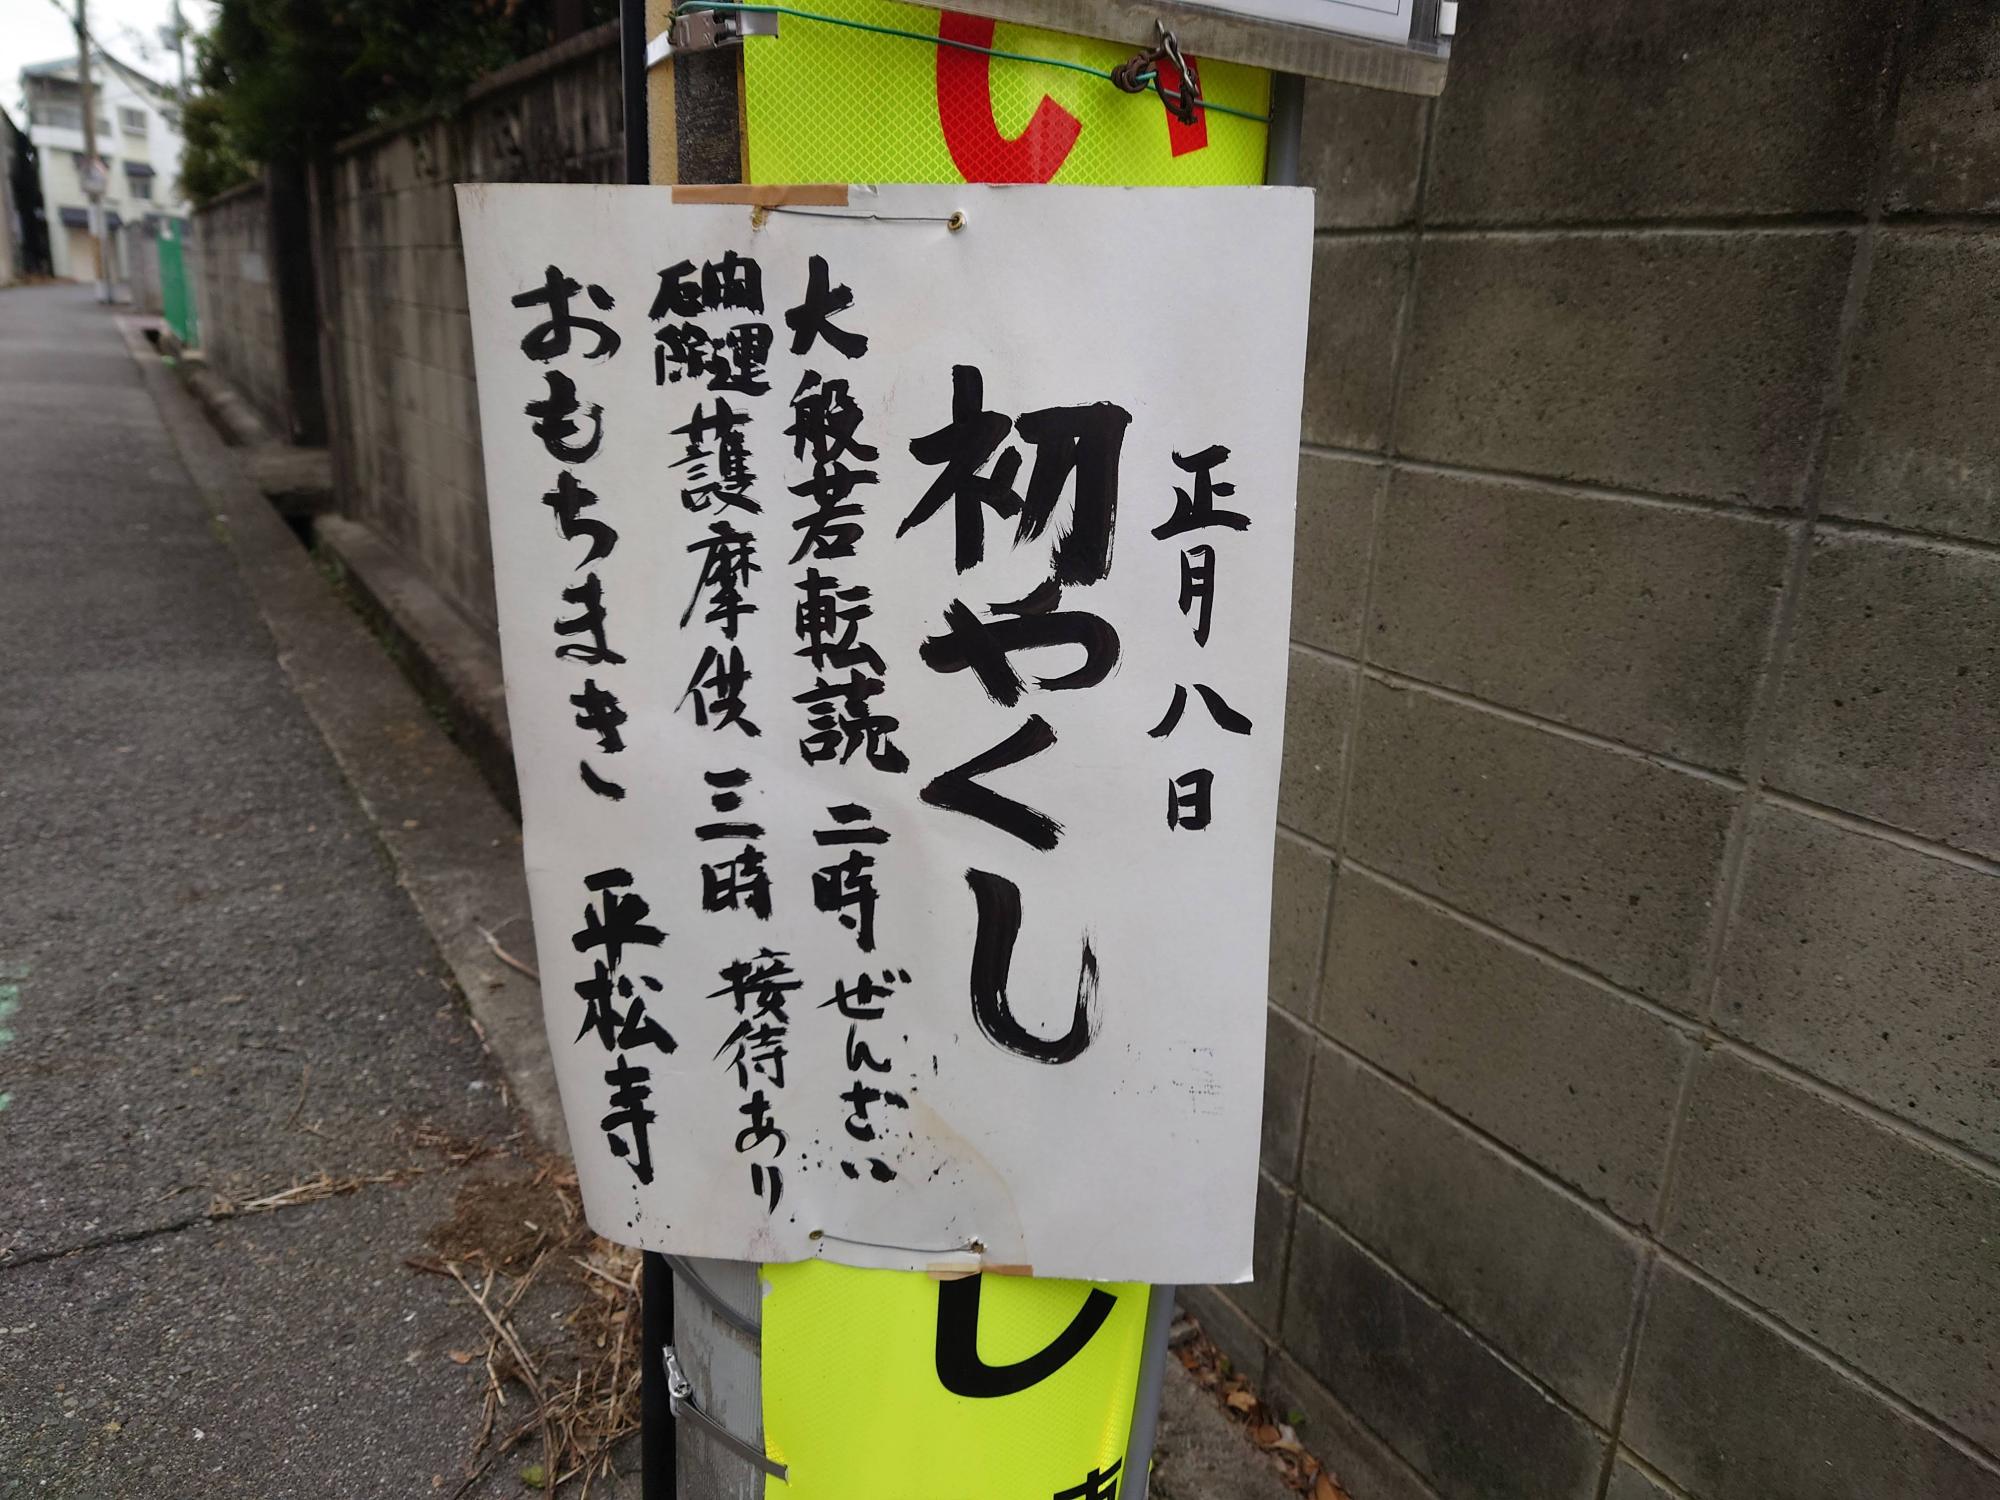 正月八日
初やくし
大般若転読 二時 ぜんざい
開運厄除護摩供 三時 接待あり
おもちまき 平松寺
し